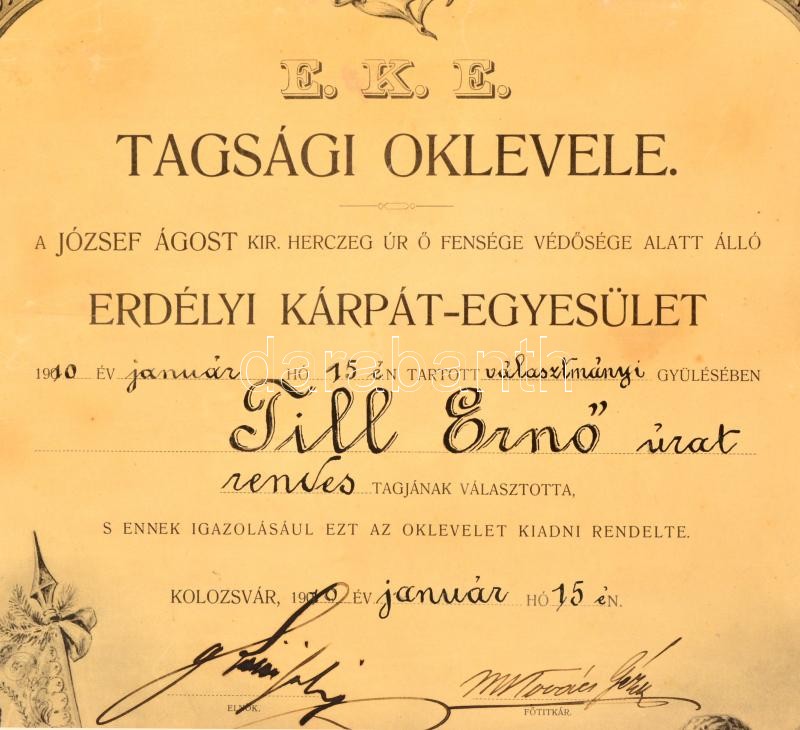 E. K. E.
TAGSÁGI OKLEVELE.
A JÓZSEF ÁGOST KIR. HERCZEG ÚR Ő FENSÉGE VÉDŐSÉGE ALATT ÁLLÓ
ERDÉLYI KÁRPÁT-EGYESÜLET
1910 ÉV január HÓ 15 én TARTOTT választmányi GYÜLÉSÉBEN
darabanth
Till Ernő úrat
rendes TAGJÁNAK VÁLASZTOTTA,
S ENNEK IGAZOLÁSÁUL EZT AZ OKLEVELET KIADNI RENDELTE.
KOLOZSVÁR, 1910 ÉV január HÓ 15 éN.
Géza
ELNÖK. FŐTITKÁR.